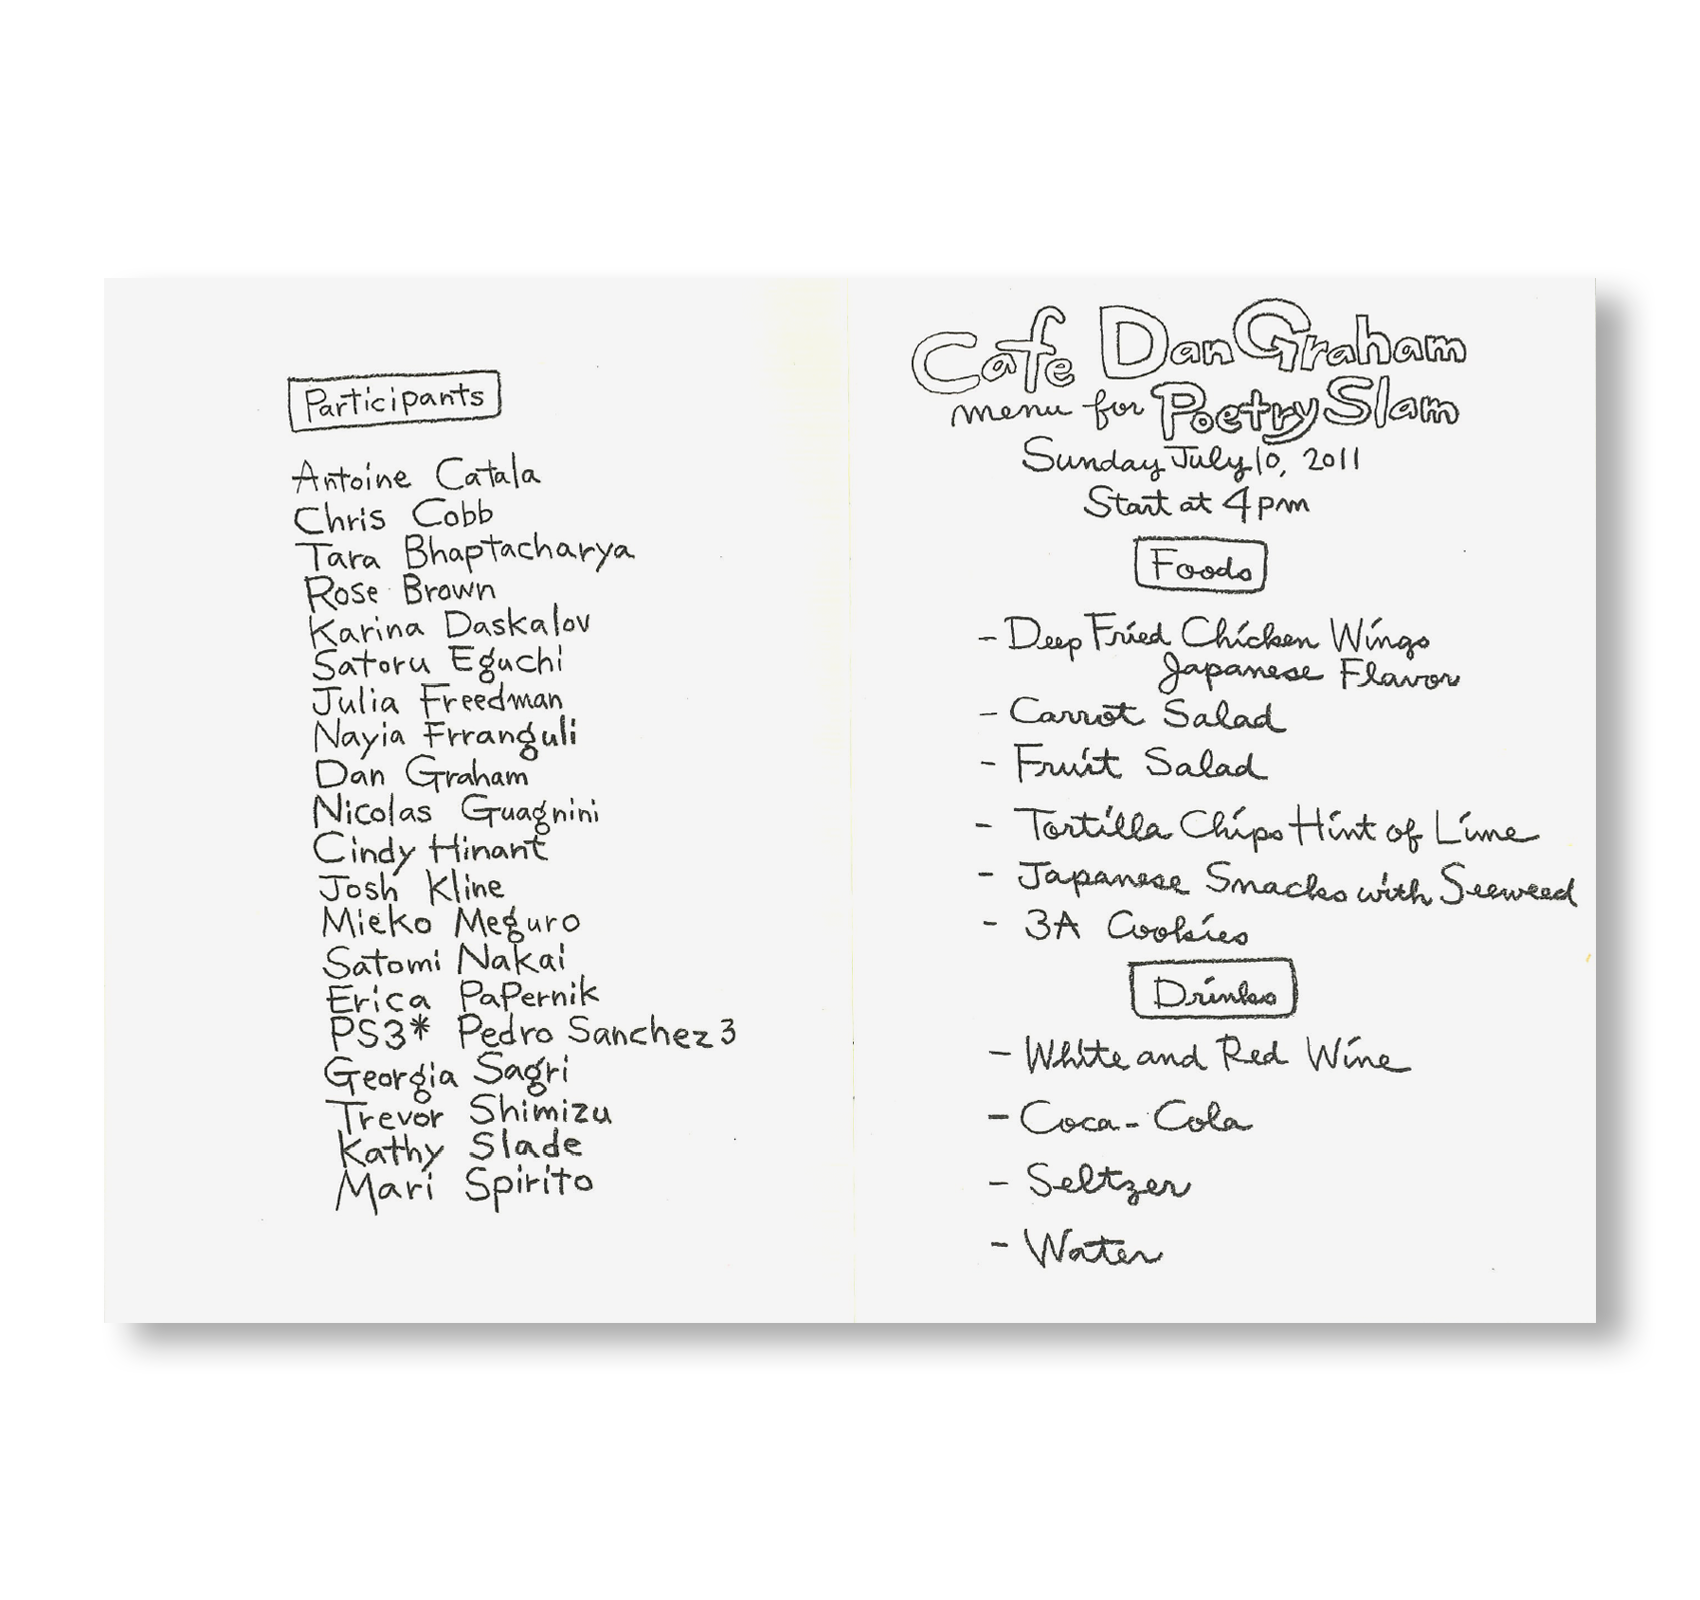 Participants
Antoine Catala
Chris Cobb
Tara Bhaptacharya
Rose Brown
Karina Daskalov
Satoru Eguchi
Julia Freedman
Nayia Frranguli
Dan Graham
Nicolas Guagnini
Cindy Hinant
Josh Kline
Mieko Meguro
Satomi Nakai
Erica PaPernik
PS3* Pedro Sanchez 3
Georgia Sagri
Trevor Shimizu
Kathy Slade
Mari Spirito
Cafe Dan Graham
menu for Poetry Slam
Sunday July 10, 2011
Start at 4pm
Foods
- Deep Fried Chicken Wings
Japanese Flavor
- Carrot Salad
- Fruit Salad
- Tortilla Chips Hint of Lime
- Japanese Snacks with Seeweed
- 3A Cookies
Drinks
- White and Red Wine
- Coca-Cola
- Seltzer
- Water